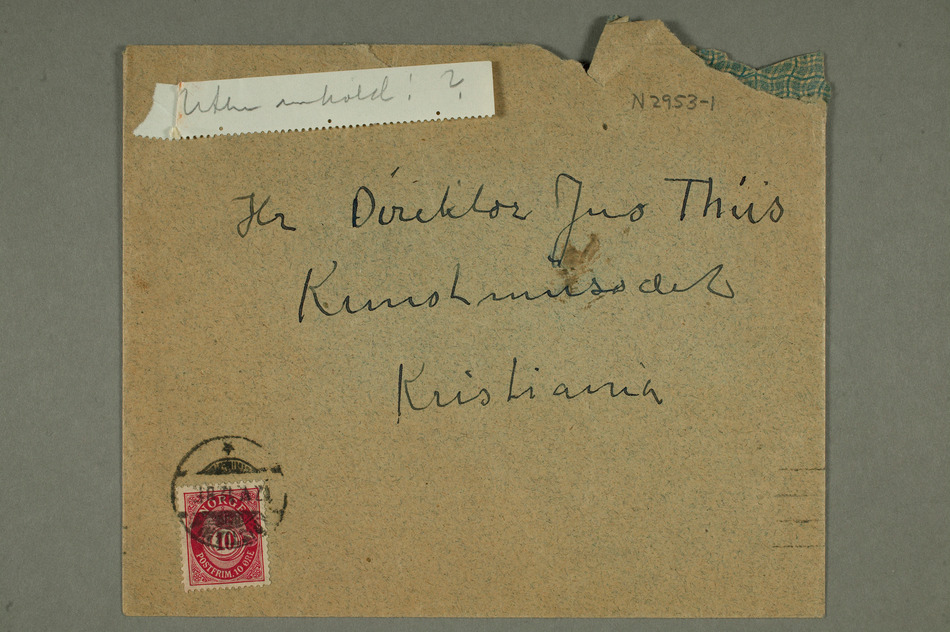 Uten innhold! ?
N 2953-1
Hr Direktør Jens Thiis
Kunstmuseet
Kristiania
NORGE
10
POSTFRIM. 10 ØRE